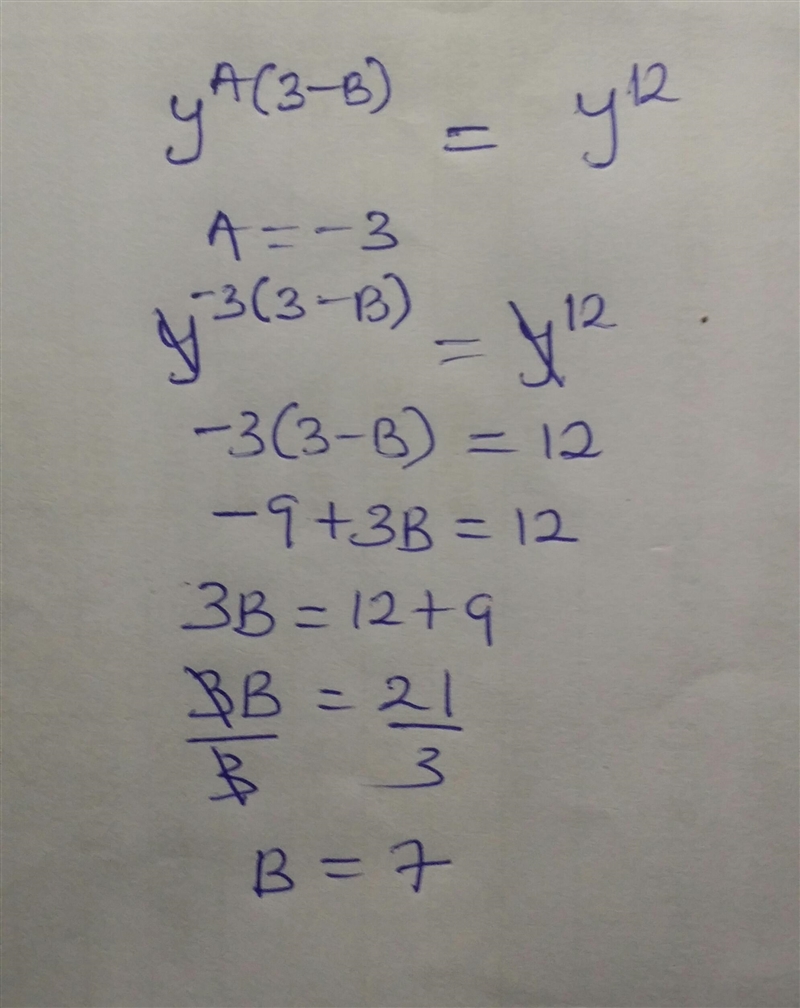 y^A(3-B) = y^12
A = -3
y^-3(3-B) = y^12
-3(3-B) = 12
-9+3B = 12
3B = 12+9
3B/3 = 21/3
B = 7